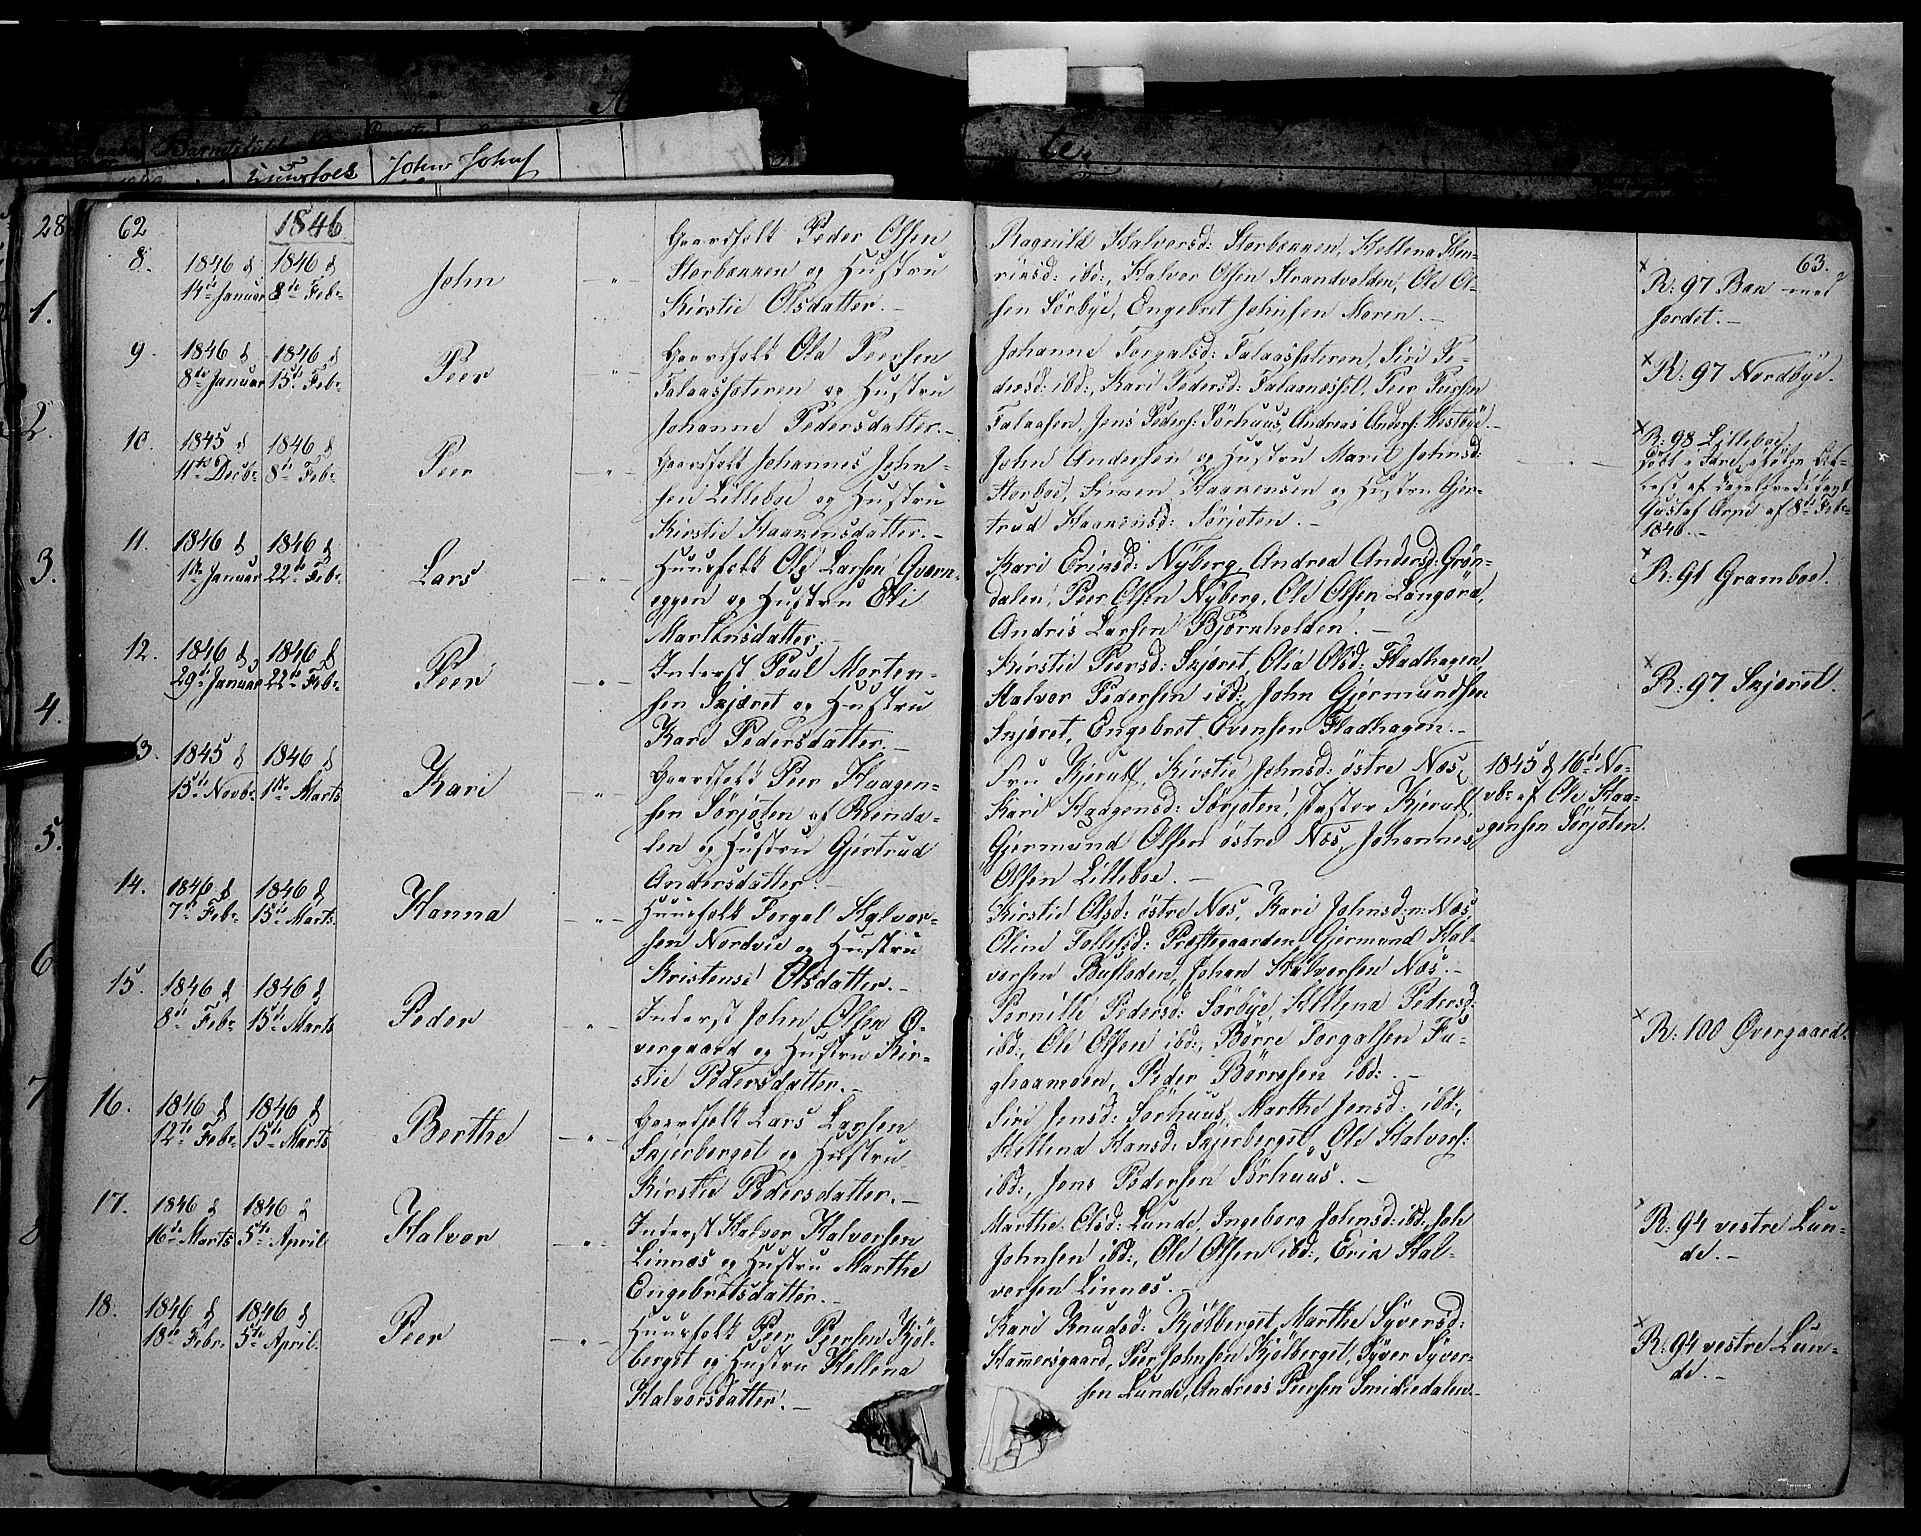 28
62
1846
63.
8.
1846 d
14de Januar
1846 d
8de Febr
John
Gaardfolk Peder Olsen
Storbækken og Hustru
Kirstie Olsdatter.
Ragnild Halvorsd: Storbækken, Hellena Hen-
riksd: ibd:, Halvor Olsen Strandvolden, Ole Ol-
sen Sörbÿe, Engebret Johnsen Moren.
R: 97 Bak med
Jordet.
9
1846 d
8de Januar
1846 d
15de Febr
Peer
Gaardfolk Ole Peersen
Galaassæteren og Hustru
Johanne Pedersdatter.
Johanne Torgalsd: Galaassæteren, Siri Pe-
dersd: ibd:, Kari Pedersd: Peer Peersen
Galaasen, Jens Peders: Sörhuus, Andreas Anders:
R: 97 Nordbÿe.
10.
1845 d
11te Decb
1846 d
8de Febr
Peer
Gaardfolk Johannes John-
sen Lilleboe og Hustru
Kirstie Haakensdatter.
John Andersen og Hustru Marit Johnsd:
Storboe, Simen Haakensen og Hustru Gjer-
trud Haakensd: Sörjoten.
R: 98 Lilleboe.
Gustaf af 8de Febr
1846.
11.
1846 d
1ste Januar
1846 d
22de Febr
Lars
Huusfolk Ole Larsen Qværn-
eggen og Hustru Eli
Martinsdatter.
Kari Eriksd: Nÿberg, Andrea Andersd: Grön-
dalen, Peer Olsen Nÿberg, Ole Olsen Langöra,
Andris Larsen Björnholden.
R: 91 Gramboe.
12.
1846 d
29de Januar
1846 d
22de Febr
Peer
Inderst Poul Morten-
sen Skjæret og Hustru
Kari Pedersdatter.
Kirstie Peersd: Skjæret, Olea Olsd: Fladhagen,
Halvor Pedersen ibd:, John Gjermundsen
Skjæret, Engebret Evensen Fladhagen.
R: 97 Skjæret.
13.
1845 d
15de Novbr
1846 d
1ste Marts
Kari
Gaardfolk Peer Haagen-
sen Sörjoten af Renda-
len og Hustru Gjertrud
Andersdatter.
Fru Kjerulf, Kirstie Johnsd: östre Næs,
Kari Haagensd: Sörjoten, Pastor Kjerulf,
Gjermund Olsen östre Næs, Johannes
Olsen Lilleboe.
1845 d 16de No-
vbr af Ole Haa-
gensen Sörjoten.
14.
1846 d
7de Febr
1846 d
15de Marts
Hanna
Huusfolk Torgal Halvor-
sen Nordvie og Hustru
Kristense Olsdatter.
Kirstie Olsd: östre Næs, Kari Johnsd: n: Næs,
Oline Tollefsd: Præstegaarden, Gjermund Hal-
vorsen Bufloden, Johan Halvorsen Næs.
15.
1846 d
8de Febr
1846 d
15de Marts
Peder
Inderst John Olsen Ö-
vergaard og Hustru Kir-
stie Pedersdatter.
Pernille Pedersd: Sörbÿe, Hellena Pedersd:
ibd:, Ole Olsen ibd:, Börre Torgalsen Fu-
glhaamoen, Peder Börresen ibd:.
R: 100 Övergaard.
16.
1846 d
12te Febr
1846 d
15de Marts
Berthe
Gaardfolk Lars Larsen
Skjerberget og Hustru
Kirstie Pedersdatter.
Siri Jensd: Sörhuus, Marthe Jensd: ibd:,
Hellena Hansd: Skjerberget, Ole Halvors:
ibd:, Jens Pedersen Sörhuus.
17.
1846 d
16de Marts
1846 d
5te April
Halvor
Inderst Halvor Halvorsen
Linnæs og Hustru Marthe
Engebretsdatter.
Marthe Olsd: Lunde, Ingeborg Johnsd: ibd:, Joh
Johnsen ibd:, Ole Olsen ibd:, Erik Hal-
vorsen Linnæs.
R: 94 vestre Lun-
de.
18.
1846 d
18de Febr
1846 d
5te April
Peer
Huusfolk Peer Peersen Kjöl-
berget og Hustru Hellena
Halvorsdatter.
Kari Knudsd: Kjölberget, Marthe Sÿversd:
Hammersgaard, Peer Johnsen Kjölberget, Sÿver Sÿver-
sen Lunde, Andreas Peersen Smidiedalen.
R: 94 vestre Lun-
de.
1.
2.
3.
4.
5.
6
7
8
John Johns